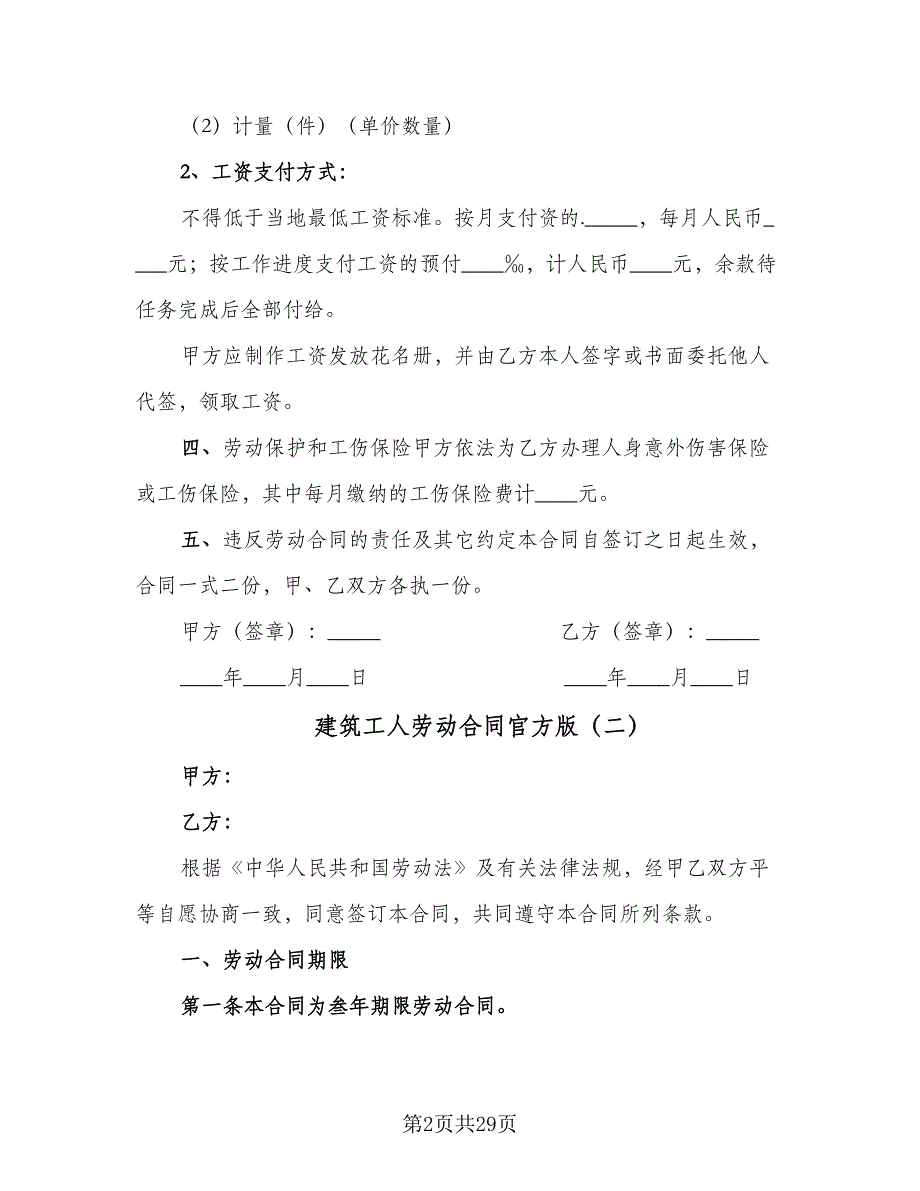 （2）计量（件）（单价数量）
2、工资支付方式：
不得低于当地最低工资标准。按月支付资的._____，每月人民币_
___元；按工作进度支付工资的预付____‰，计人民币____元，余款待
任务完成后全部付给。
甲方应制作工资发放花名册，并由乙方本人签字或书面委托他人
代签，领取工资。
四、劳动保护和工伤保险甲方依法为乙方办理人身意外伤害保险
或工伤保险，其中每月缴纳的工伤保险费计____元。
五、违反劳动合同的责任及其它约定本合同自签订之日起生效，
合同一式二份，甲、乙双方各执一份。
甲方（签章）：_____ 乙方（签章）：_____
____年____月____日 ____年____月____日
建筑工人劳动合同官方版（二）
甲方：
乙方：
根据《中华人民共和国劳动法》及有关法律法规，经甲乙双方平
等自愿协商一致，同意签订本合同，共同遵守本合同所列条款。
一、劳动合同期限
第一条本合同为叁年期限劳动合同。
第2页共29页